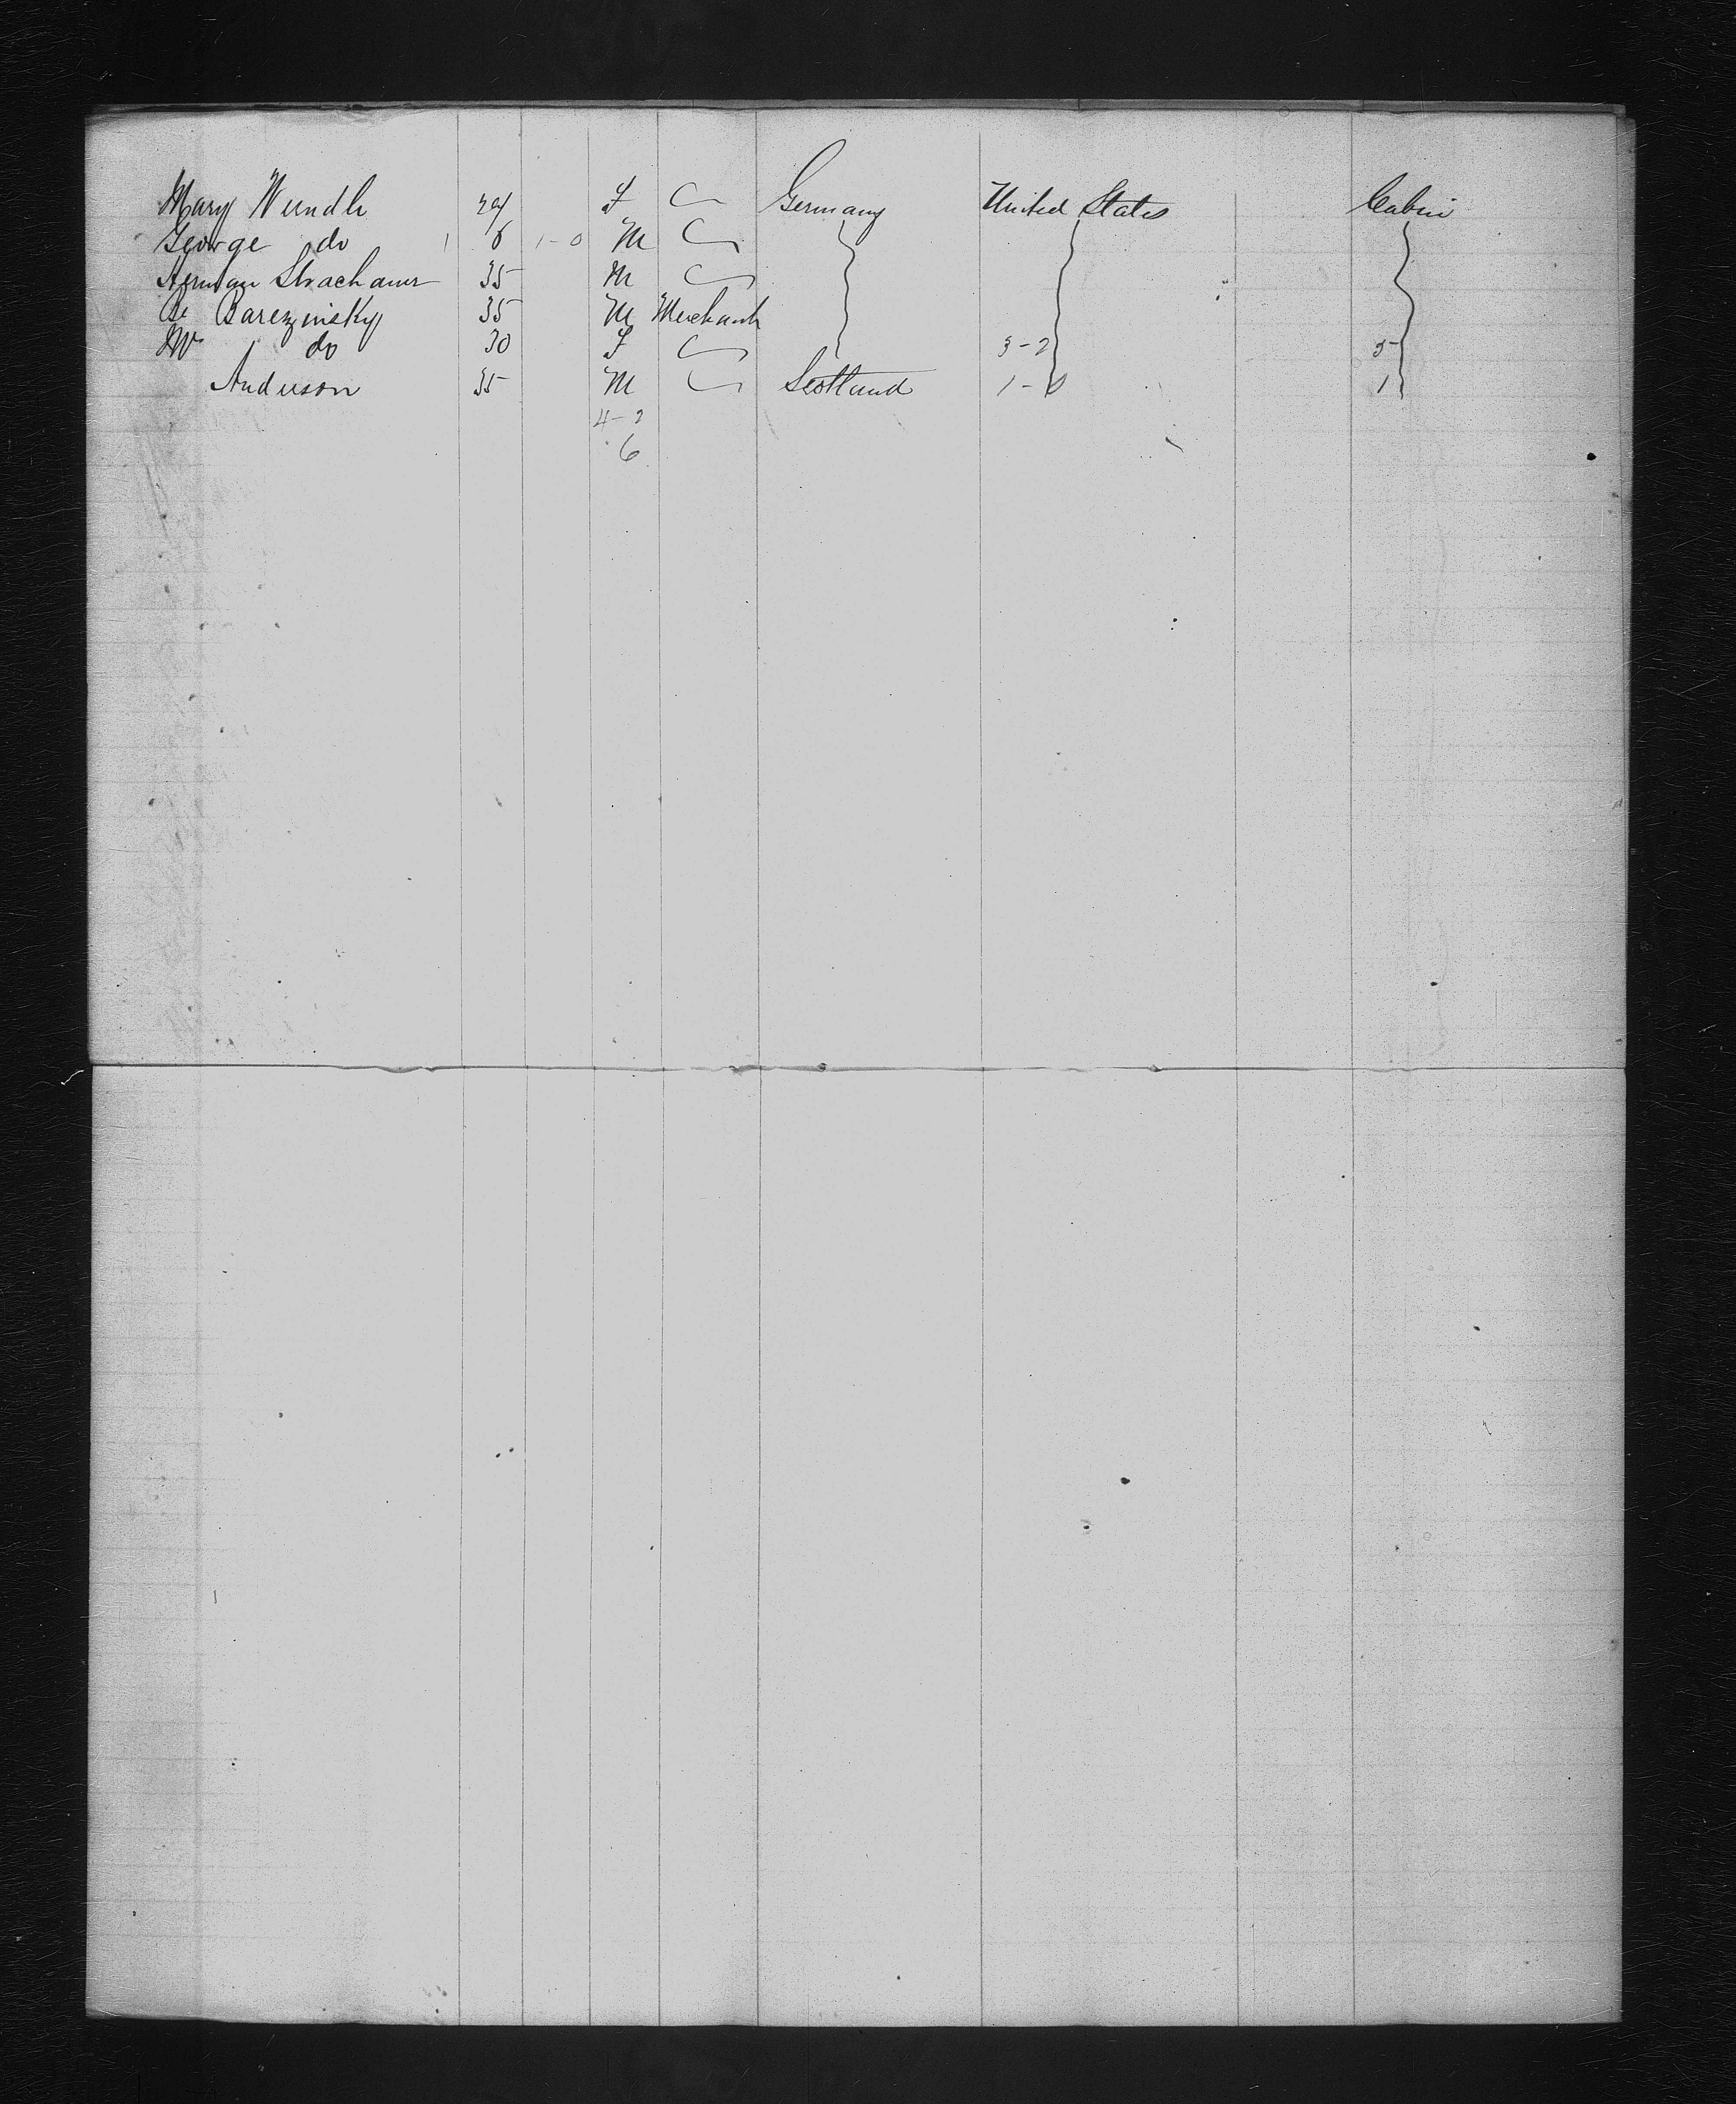 Mary Wundle 24 F Germany United States Cabin
George do 1 6 1-0 M
Herman Strachauer 35 M
Be Barezinsky 35 M Merchant
W do 30 F 3-2 5
Anderson 35 M Scotland 1-0 1
4-2
6